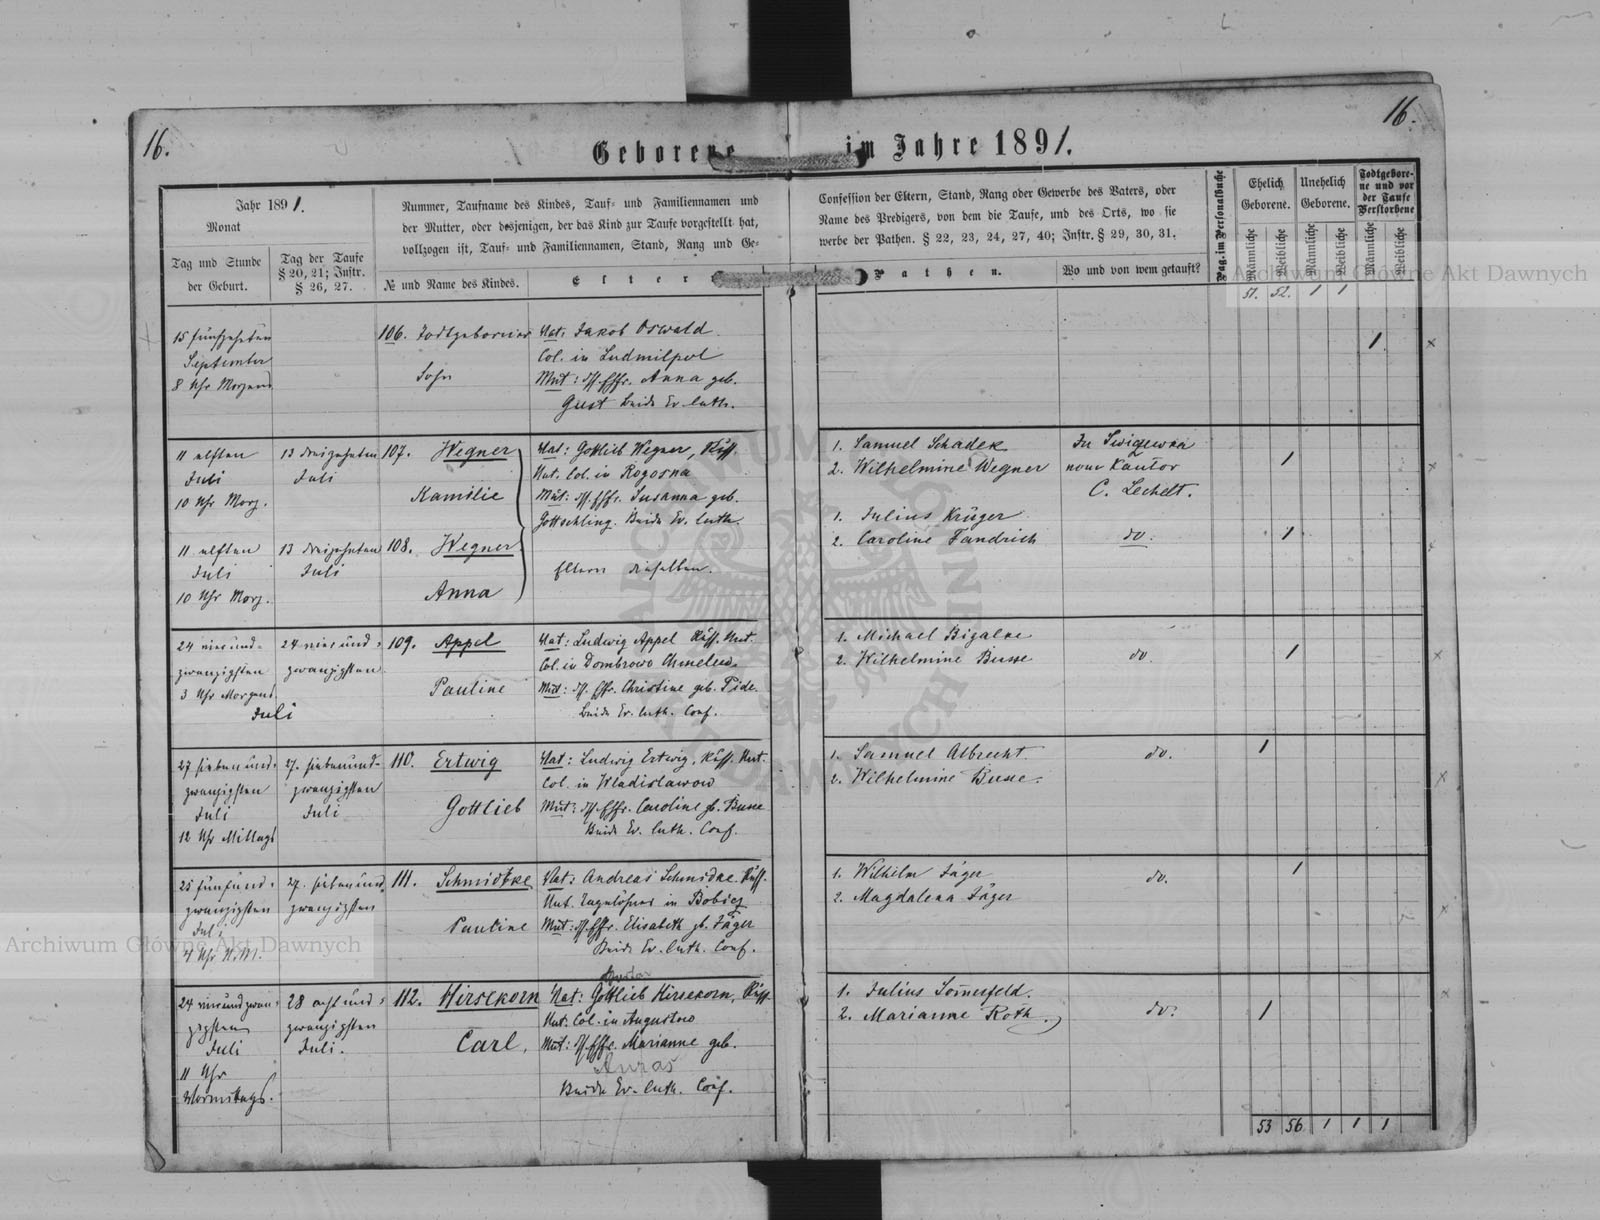 16.
16.
Geborene im Jahre 1891.
Jahr 1891.
Monat
Tag und Stunde
der Geburt.
Tag der Taufe
§ 20, 21; Instr.
§ 26, 27.
Nummer, Taufname des Kindes, Tauf- und Familiennamen und
der Mutter, oder desjenigen, der das Kind zur Taufe vorgestellt hat,
vollzogen ist, Tauf- und Familiennamen, Stand, Rang und Ge-
№ und Name des Kindes.
Elter
Confession der Eltern, Stand, Rang oder Gewerbe des Vaters, oder
Name des Predigers, von dem die Taufe, und des Orts, wo sie
werbe der Pathen. § 22, 23, 24, 27, 40; Instr. § 29, 30, 31.
Pathen.
Wo und von wem getauft?
Pag. im Personalbuche
Ehelich
Geborene.
Unehelich
Geborene.
Todtgebore-
ne und vor
der Taufe
Verstorbene
Männliche
Weibliche
Männliche
Weibliche
Männliche
Weibliche
51. 52. 1 1
15 fünfzehnten
September
8 Uhr Morgens
106. Todtgeborener
Sohn
Vat: Jakob Oswald
Col. in Ludmilpol
Mut: Anna geb.
Gust Beide Ev. luth.
1
11 elften
Juli
10 Uhr Morg.
13 dreizehnten
Juli
107. Wegner
Kamilie
Vat: Gottlieb Wegner,
Unt. Col. in Rogosna
Mut: Susanna geb.
Gottschling. Beide Ev. luth.
1. Samuel Schadek
2. Wilhelmine Wegner
In
vom Kantor
C. Lechelt.
1
11 elften
Juli
10 Uhr Morg.
13 dreizehnten
Juli
108. Wegner
Anna
Eltern dieselben.
1. Julius Krüger
2. Caroline Fandrich
do.
1
24 vierund-
zwanzigsten
3 Uhr Morgens
Juli
24 vierund-
zwanzigsten
109. Appel
Pauline
Vat: Ludwig Appel Unt.
Col. in Dombrowo
Mut: Christine geb.
Beide Ev. luth. Conf.
1. Michael Bigalke
2. Wilhelmine Busse
do.
1
27 siebenund-
zwanzigsten
Juli
12 Uhr Mittags
27. siebenund-
zwanzigsten
Juli
110. Ertwig
Gottlieb
Vat: Ludwig Ertwig, Unt.
Col. in Wladislawow
Mut: Caroline gb. Busse
Beide Ev. luth. Conf.
1. Samuel Albrecht.
2. Wilhelmine Busse.
do.
1
25 fünfund-
zwanzigsten
Juli
4 Uhr N.M.
27. siebenund-
zwanzigsten
111. Schmidtke
Pauline
Vat: Andreas Schmidke.
Unt. Tagelöhner in
Mut: Elisabeth gb. Jäger
Beide Ev. luth. Conf.
1. Wilhelm Jäger
2. Magdalena Jäger
do.
1
24 vierundzwan-
zigsten
Juli
11 Uhr
Vormittags.
28 achtund-
zwanzigsten
Juli.
112. Hirsekorn
Carl.
Vat: Gottlieb Hirsekorn,
Unt. Col. in
Mut: Marianne geb.
Beide Ev. luth. Conf.
1. Julius Sommerfeld.
2. Marianne Roth.
do.
1
53 56 1 1 1
Archiwum Główne Akt Dawnych
Archiwum Główne Akt Dawnych
ARCHIWUM GŁÓWNE AKT DAWNYCH